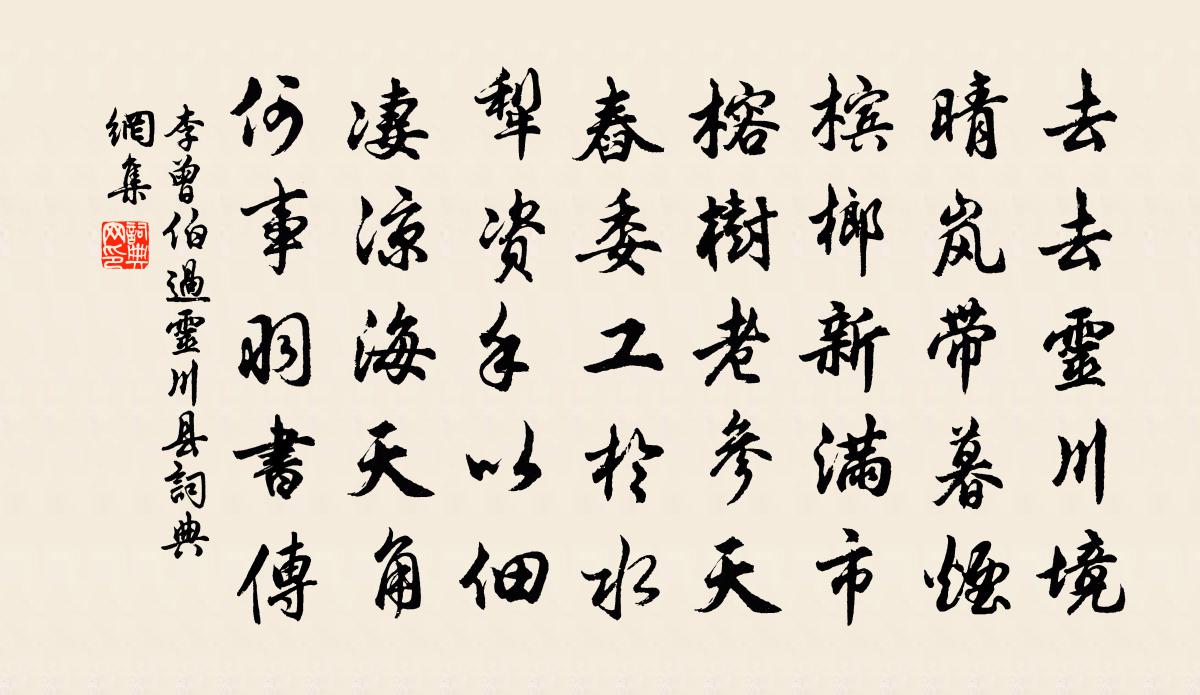 去去靈川境
晴岚帶暮煙
槟榔新满市
榕樹老參天
舂委工於水
犁资手以佃
凄凉海天角
何事羽書傳
李曾伯過靈川县詞典
網集
詞典
网印